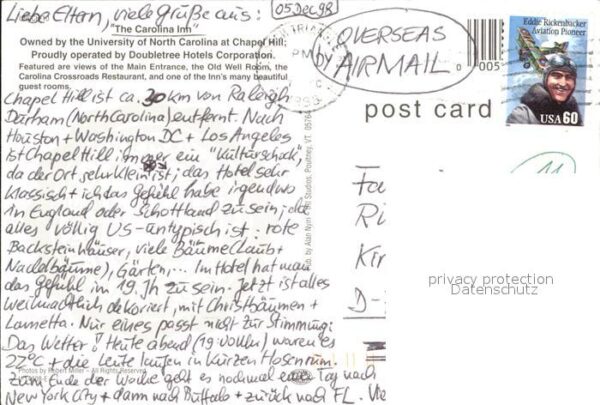 Liebe Eltern, viele Grüße aus: 05 Dec 98
"The Carolina Inn"
Owned by the University of North Carolina at Chapel Hill;
Proudly operated by Doubletree Hotels Corporation.
Featured are views of the Main Entrance, the Old Well Room, the
Carolina Crossroads Restaurant, and one of the Inn's many beautiful
guest rooms.
Chapel Hill ist ca. 30 km von Raleigh
Durham (North Carolina) entfernt. Nach
Houston + Washington DC + Los Angeles
ist Chapel Hill immer ein "Kulturschock",
da der Ort sehr klein ist; das Hotel sehr
klassisch + ich das Gefühl habe irgendwo
in England oder Schottland zu sein; da
alles völlig US-untypisch ist: rote
Backsteinhäuser, viele Bäume (Laub+
Nadelbäume), Gärten,... Im Hotel hat man
das Gefühl im 19. Jh zu sein. Jetzt ist alles
weihnachtlich dekoriert, mit Christbäumen +
Lametta. Nur eines passt nicht zur Stimmung:
Das Wetter! Heute abend (19:00 Uhr) waren es
27°C + die Leute laufen in kurzen Hosen rum.
Zum Ende der Woche geht es nochmal einen Tag nach
New York City + dann nach Buffalo + zurück nach FL.
Photos by Robert Miller - All Rights Reserved.
Pub. by Alan Nyiri Studios, Poultney, VT. 05764
OVERSEAS
by AIRMAIL
PM
0 005
Eddie Rickenbacker
Aviation Pioneer
USA 60
post card
11
Fa
Ri
Kir
D-
privacy protection
Datenschutz